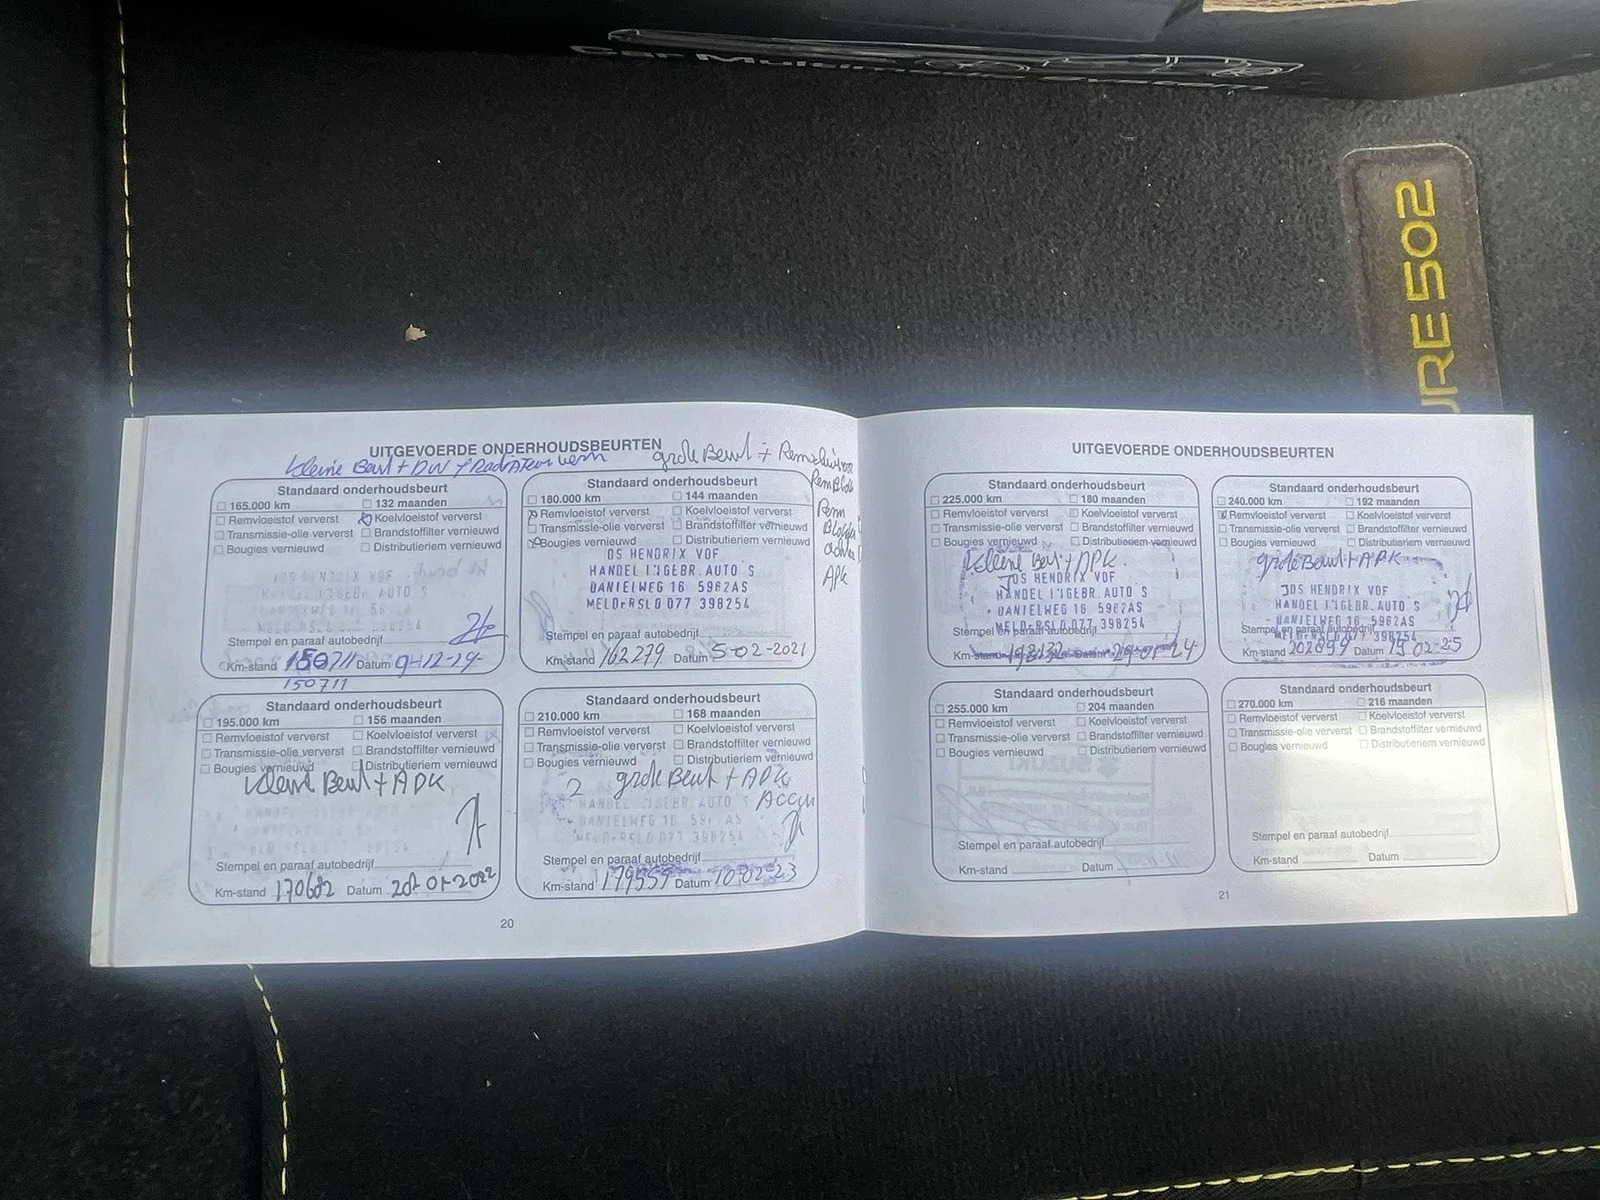 URE 502
UITGEVOERDE ONDERHOUDSBEURTEN
kleine Beurt + DW + Radiateur vern
grote Beurt + Remschijven
RemBlok
Rem
APK
Standaard onderhoudsbeurt
165.000 km 132 maanden
Remvloeistof ververst Koelvloeistof ververst
Transmissie-olie ververst Brandstoffilter vernieuwd
Bougies vernieuwd Distributieriem vernieuwd
Stempel en paraaf autobedrijf
Km-stand 150711 Datum 9-12-19
150711
Standaard onderhoudsbeurt
180.000 km 144 maanden
Remvloeistof ververst Koelvloeistof ververst
Transmissie-olie ververst Brandstoffilter vernieuwd
Bougies vernieuwd Distributieriem vernieuwd
OS HENDRIX VOF
HANDEL I'IGEBR.AUTO S
DANIELWEG 16 5962AS
MELDERSLO 077 398254
Stempel en paraaf autobedrijf
Km-stand 162279 Datum 5-02-2021
Standaard onderhoudsbeurt
195.000 km 156 maanden
Remvloeistof ververst Koelvloeistof ververst
Transmissie-olie ververst Brandstoffilter vernieuwd
Bougies vernieuwd Distributieriem vernieuwd
kleine Beurt + APK
Stempel en paraaf autobedrijf
Km-stand 170682 Datum 20-01-2022
Standaard onderhoudsbeurt
210.000 km 168 maanden
Remvloeistof ververst Koelvloeistof ververst
Transmissie-olie ververst Brandstoffilter vernieuwd
Bougies vernieuwd Distributieriem vernieuwd
grote Beurt + APK
Accu
HANDEL I'IGEBR.AUTO S
DANIELWEG 16 5962AS
MELDERSLO 077 398254
Stempel en paraaf autobedrijf
Km-stand 179559 Datum 10-02-23
20
UITGEVOERDE ONDERHOUDSBEURTEN
Standaard onderhoudsbeurt
225.000 km 180 maanden
Remvloeistof ververst Koelvloeistof ververst
Transmissie-olie ververst Brandstoffilter vernieuwd
Bougies vernieuwd Distributieriem vernieuwd
kleine Beurt + APK
JOS HENDRIX VOF
HANDEL I'IGEBR.AUTO S
DANIELWEG 16 5962AS
MELDERSLO 077 398254
Stempel en paraaf autobedrijf
Km-stand 193132 Datum 29-01-24
Standaard onderhoudsbeurt
240.000 km 192 maanden
Remvloeistof ververst Koelvloeistof ververst
Transmissie-olie ververst Brandstoffilter vernieuwd
Bougies vernieuwd Distributieriem vernieuwd
grote Beurt + APK
JOS HENDRIX VOF
HANDEL I'IGEBR.AUTO S
DANIELWEG 16 5962AS
MELDERSLO 077 398254
Stempel en paraaf autobedrijf
Km-stand 202899 Datum 19-02-25
Standaard onderhoudsbeurt
255.000 km 204 maanden
Remvloeistof ververst Koelvloeistof ververst
Transmissie-olie ververst Brandstoffilter vernieuwd
Bougies vernieuwd Distributieriem vernieuwd
Stempel en paraaf autobedrijf
Km-stand Datum
Standaard onderhoudsbeurt
270.000 km 216 maanden
Remvloeistof ververst Koelvloeistof ververst
Transmissie-olie ververst Brandstoffilter vernieuwd
Bougies vernieuwd Distributieriem vernieuwd
Stempel en paraaf autobedrijf
Km-stand Datum
21